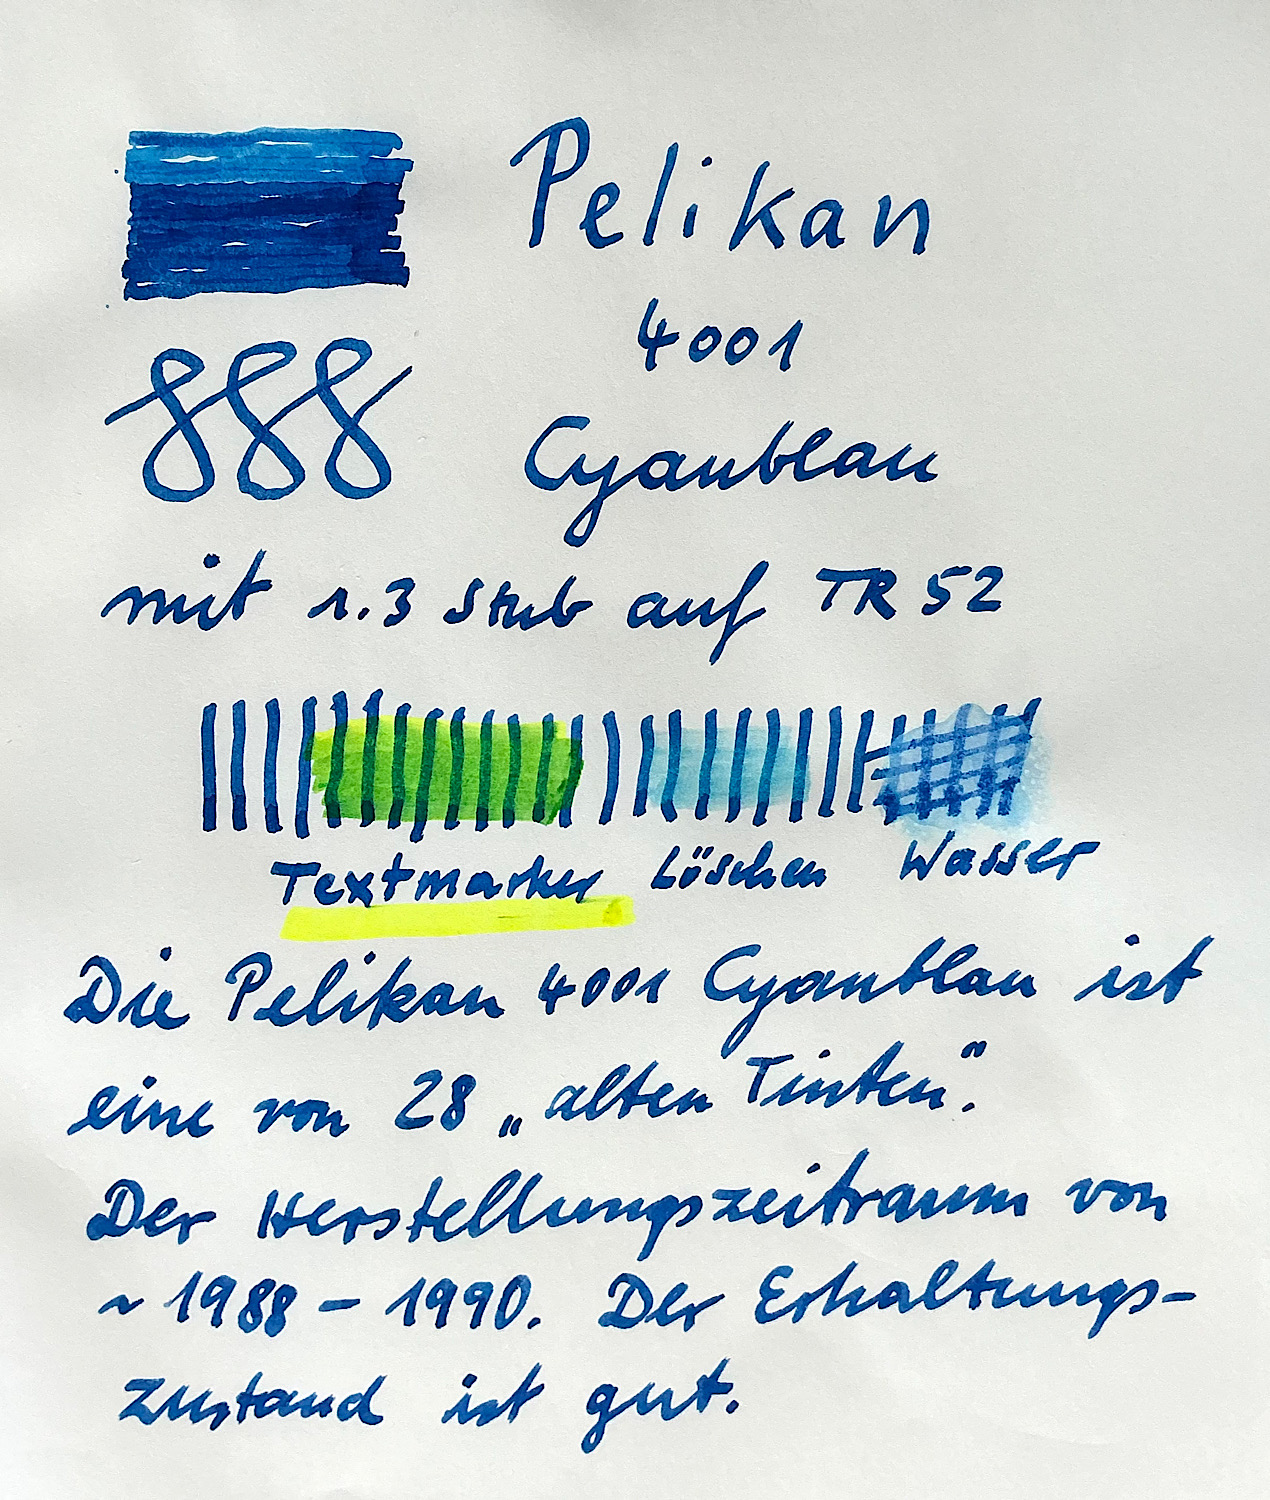 Pelikan
4001
Cyanblau
mit 1.3 Stub auf TR 52
Textmarker Löschen Wasser
Die Pelikan 4001 Cyanblau ist
eine von 28 „alten Tinten".
Der Herstellungszeitraum von
~ 1988 - 1990. Der Erhaltungs-
zustand ist gut.